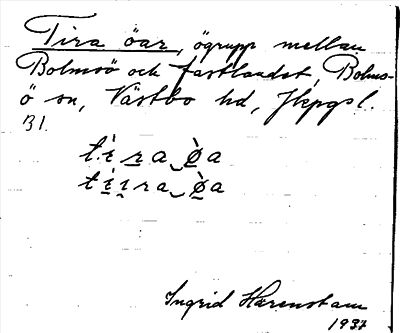 Tira öar, ögrupp mellan
Bolmsö och fastlandet, Bolms-
ö sn, Västbo hd, Jkpgs l.
Bl.
Ingrid Harenstam
1937